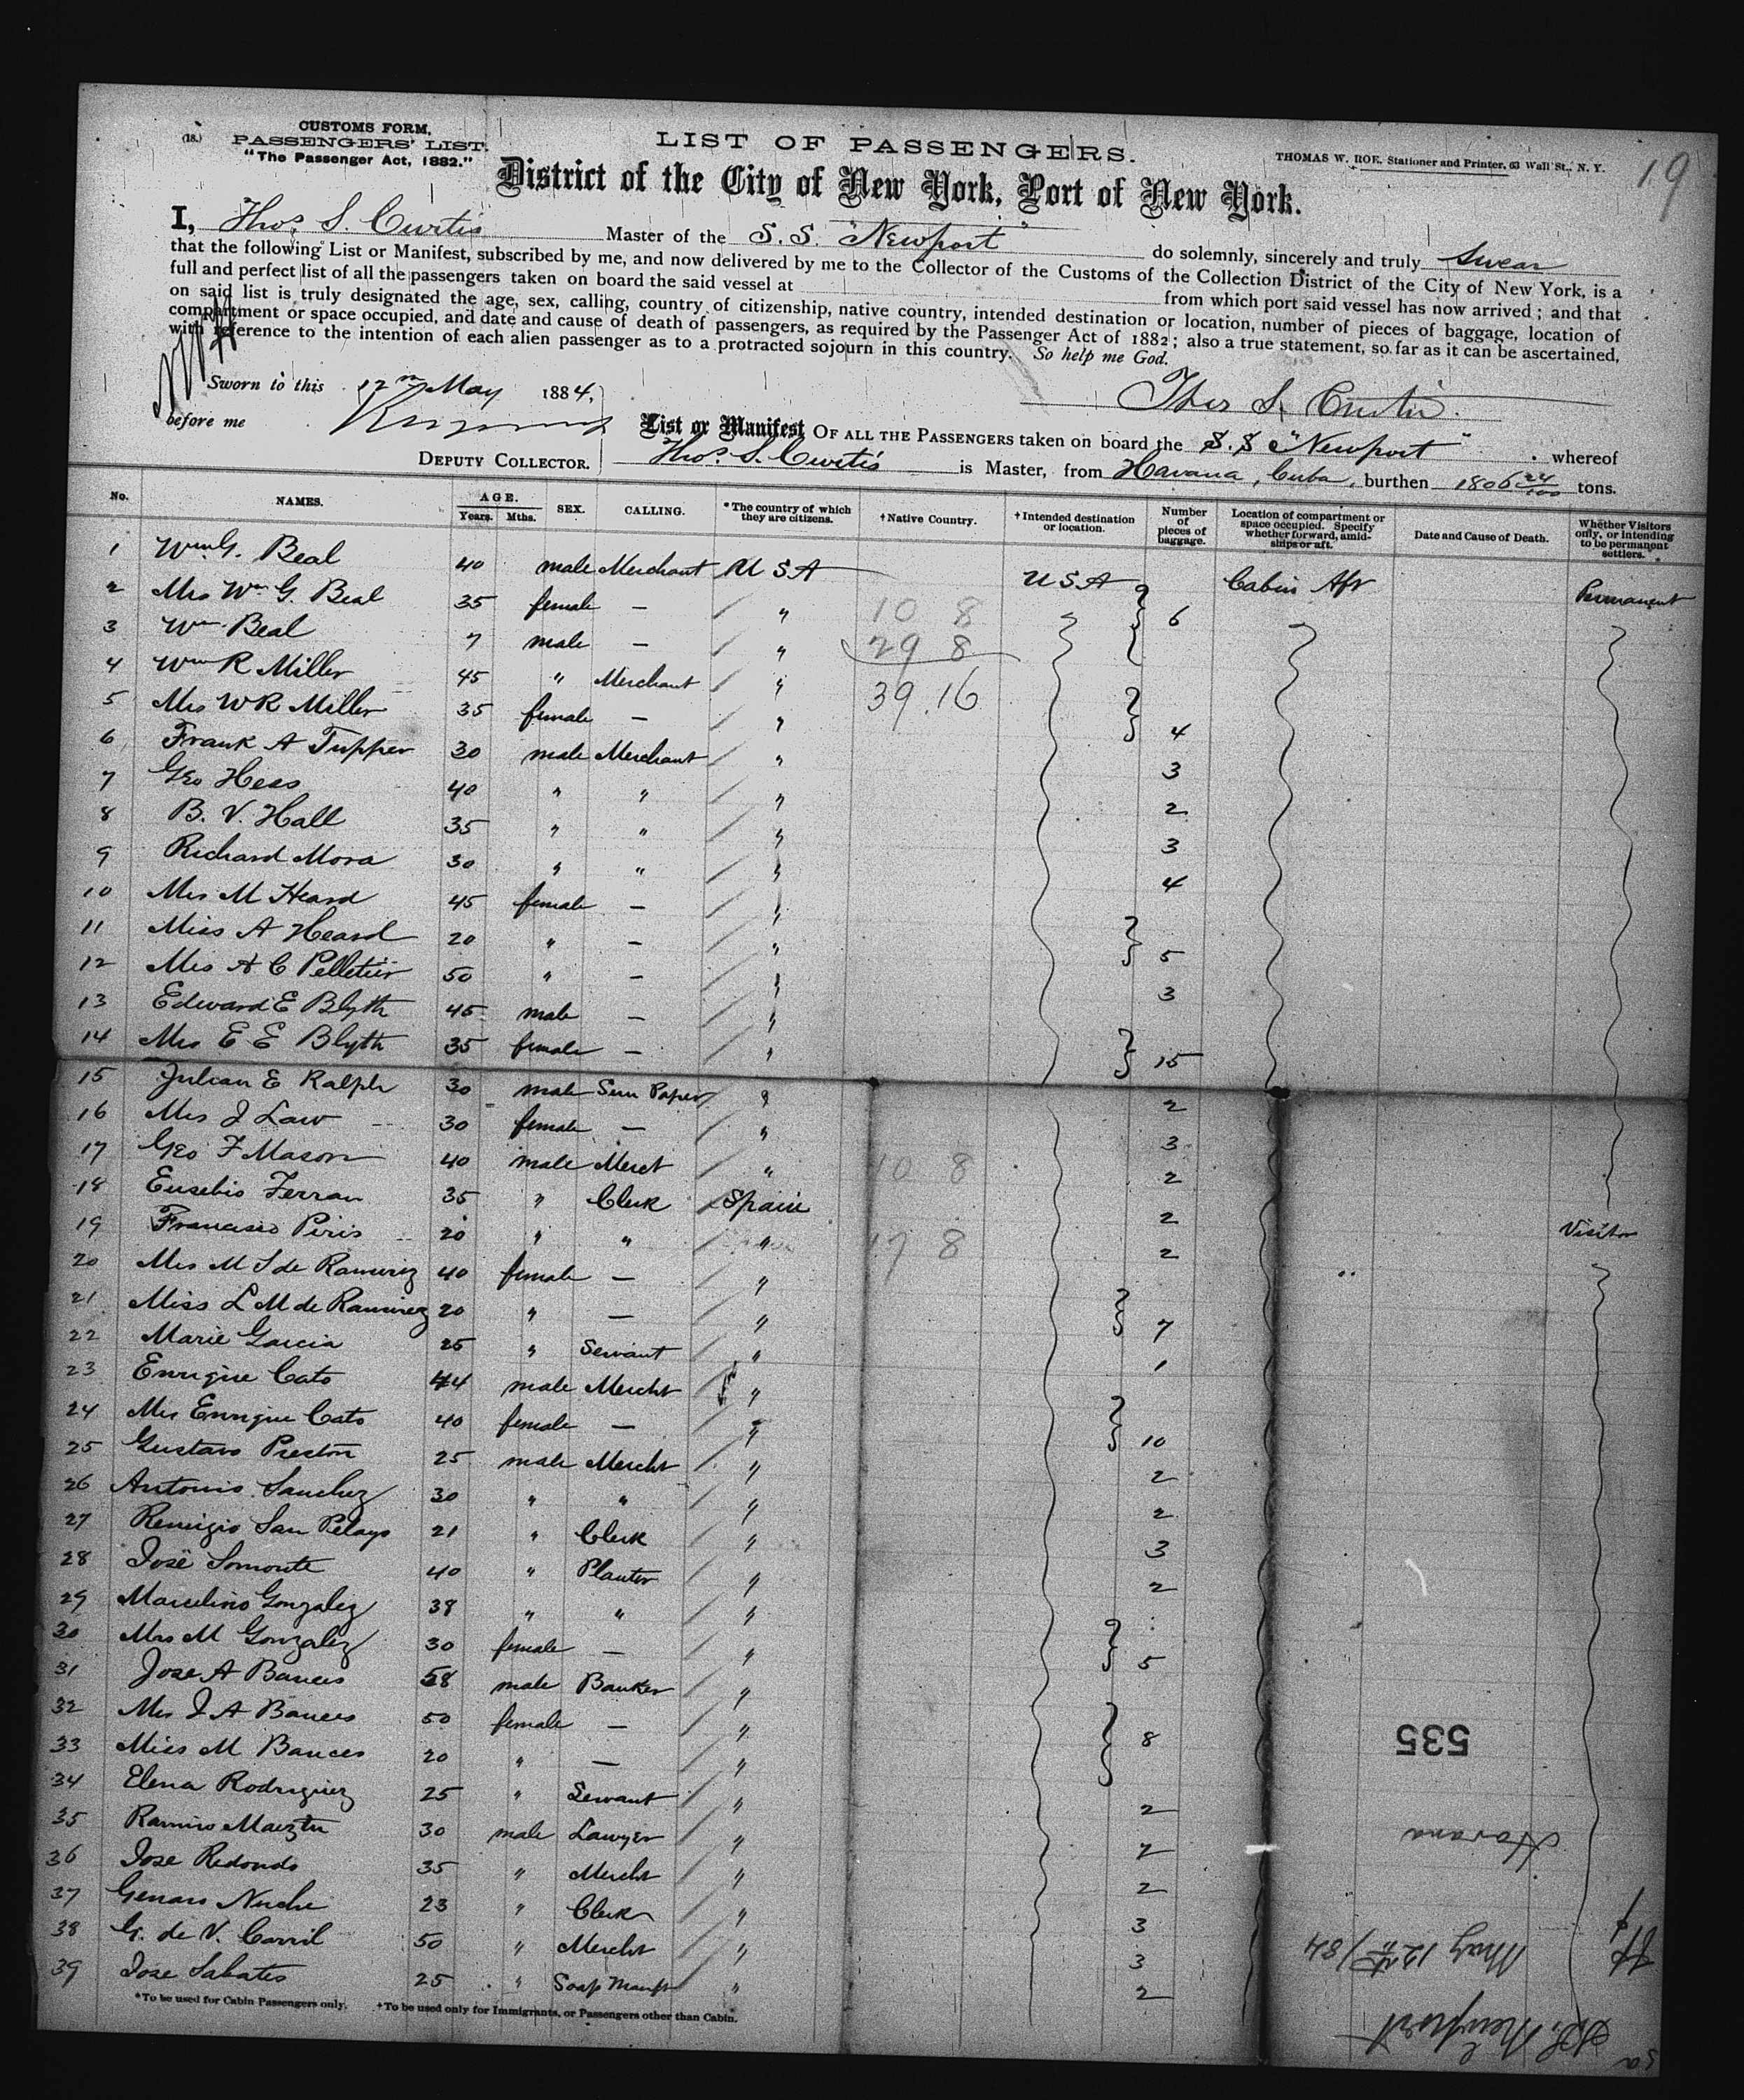 (18.)
CUSTOMS FORM,
PASSENGERS' LIST.
"The Passenger Act, 1882."
LIST OF PASSENGERS.
THOMAS W. ROE, Stationer and Printer, 63 Wall St., N. Y.
19
District of the City of New York, Port of New York.
I, Thos. S. Curtis Master of the S. S. "Newport" do solemnly, sincerely and truly Swear
that the following List or Manifest, subscribed by me, and now delivered by me to the Collector of the Customs of the Collection District of the City of New York, is a
full and perfect list of all the passengers taken on board the said vessel at from which port said vessel has now arrived; and that
on said list is truly designated the age, sex, calling, country of citizenship, native country, intended destination or location, number of pieces of baggage, location of
compartment or space occupied, and date and cause of death of passengers, as required by the Passenger Act of 1882; also a true statement, so far as it can be ascertained,
with reference to the intention of each alien passenger as to a protracted sojourn in this country. So help me God.
Sworn to this 12th May 1884,
Thos S. Curtis.
before me
List or Manifest OF ALL THE PASSENGERS taken on board the S. S "Newport" whereof
DEPUTY COLLECTOR.
Thos. S. Curtis is Master, from Havana, Cuba, burthen 1806 24/100 tons.
No. NAMES. AGE. Years. Mths. SEX. CALLING. *The country of which they are citizens. †Native Country. †Intended destination or location. Number of pieces of baggage. Location of compartment or space occupied. Specify whether forward, amidships or aft. Date and Cause of Death. Whether Visitors only, or intending to be permanent settlers.
1 Wm G. Beal 40 male Merchant U S A U S A Cabin Aft Permanent
2 Mrs Wm G. Beal 35 female — " 10 8 6
3 Wm Beal 7 male — " 29 8
4 Wm R Miller 45 " Merchant " 39.16
5 Mrs W R Miller 35 female — " 4
6 Frank A Tupper 30 male Merchant " 3
7 Geo Hess 40 " " " 2
8 B. V. Hall 35 " " " 3
9 Richard Mora 30 " " " 4
10 Mrs M Heard 45 female — "
11 Miss A Heard 20 " — " 5
12 Mrs A C Pelletier 50 " — " 3
13 Edward E Blyth 45 male — "
14 Mrs E E Blyth 35 female — " 15
15 Julian E Ralph 30 male Sun Paper " 2
16 Mrs J Law 30 female — " 3
17 Geo F Mason 40 male Mercht " 10 8 2
18 Eusebio Ferran 35 " Clerk Spain 2
19 Francisco Piris 20 " " " 17 8 2 Visitor
20 Mrs M S de Ramirez 40 female — "
21 Miss L M de Ramirez 20 " — " 7
22 Marie Garcia 25 " Servant " 1
23 Enrique Cato 44 male Mercht "
24 Mrs Enrique Cato 40 female — " 10
25 Gustavo Preston 25 male Mercht " 2
26 Antonio Sanchez 30 " " " 2
27 Remigio San Pelayo 21 " Clerk " 3
28 José Somonte 40 " Planter " 2
29 Marcelino Gonzalez 38 " " "
30 Mrs M Gonzalez 30 female — " 5
31 Jose A Bances 58 male Banker "
32 Mrs J A Bances 50 female — " 8
33 Miss M Bances 20 " — "
34 Elena Rodriguez 25 " Servant " 2
35 Ramiro Maeztu 30 male Lawyer " 2
36 Jose Redondo 35 " Mercht " 2
37 Genaro Nuche 23 " Clerk " 3
38 G. de V. Carril 50 " Mercht " 3
39 Jose Sabates 25 " Soap Manfr " 2
*To be used for Cabin Passengers only. †To be used only for Immigrants, or Passengers other than Cabin.
SS. Newport
May 12th/84
Havana
535